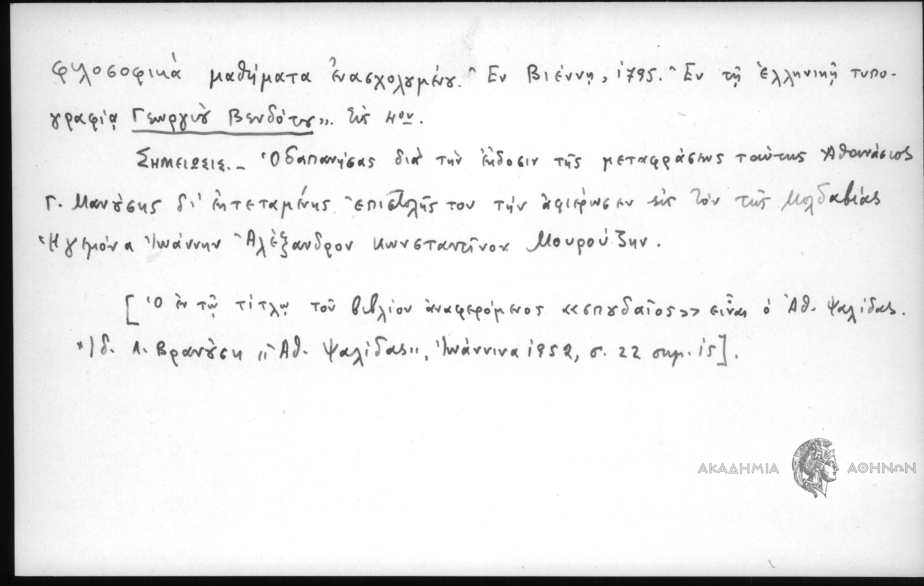 φιλοσοφικὰ μαθήματα ἐνασχολουμένου. Ἐν Βιέννῃ, 1795. Ἐν τῇ ἑλληνικῇ τυπο-
γραφίᾳ Γεωργίου Βενδότου". Εἰς 4ον.
ΣΗΜΕΙΩΣΙΣ.- Ὁ δαπανήσας διὰ τὴν ἔκδοσιν τῆς μεταφράσεως ταύτης Ἀθανάσιος
Γ. Μανούσης δι' ἐκτεταμένης ἐπιστολῆς του τὴν ἀφιέρωσεν εἰς τὸν τῆς Μολδαβίας
Ἡγεμόνα Ἰωάννην Ἀλέξανδρον Κωνσταντῖνον Μουρούζην.
[Ὁ ἐν τῷ τίτλῳ τοῦ βιβλίου ἀναφερόμενος «σπουδαῖος» εἶναι ὁ Ἀθ. Ψαλίδας.
Ἰδ. Λ. Βρανούση "Ἀθ. Ψαλίδας", Ἰωάννινα 1952, σ. 22 σημ. 15].
ΑΚΑΔΗΜΙΑ ΑΘΗΝΩΝ